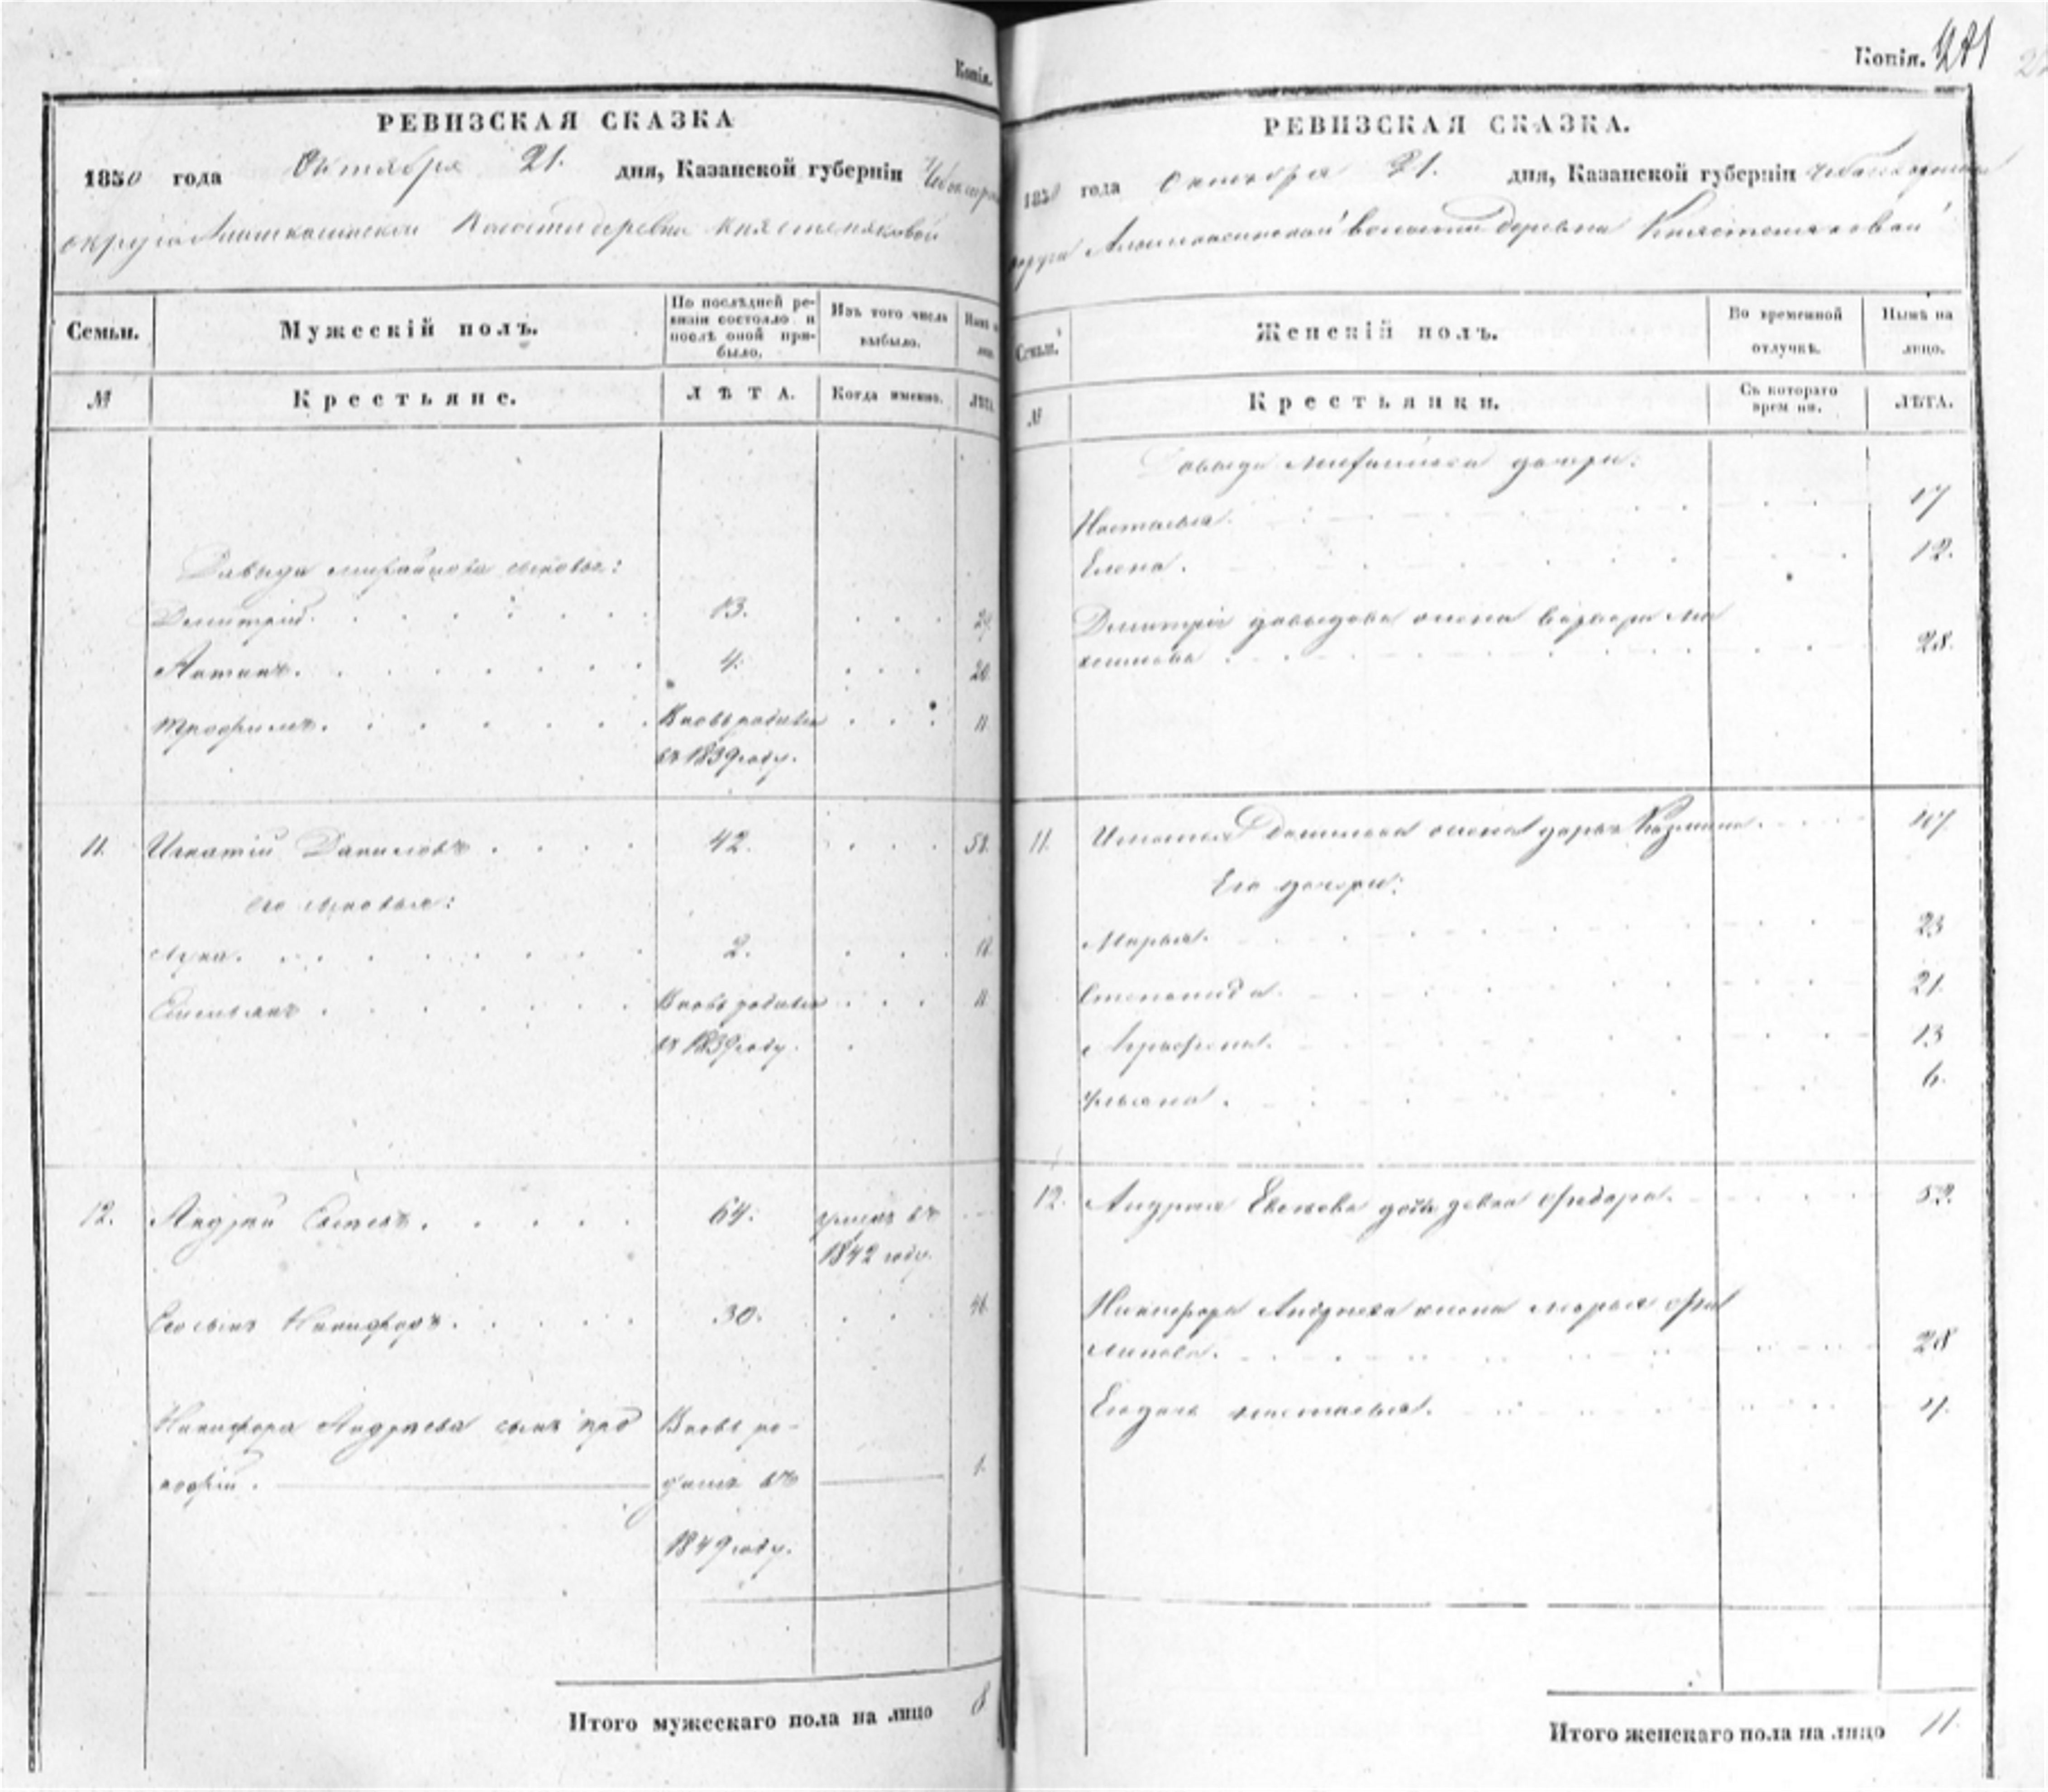 Копія.
РЕВИЗСКАЯ СКАЗКА
1850 года Октября 21. дня, Казанской губерніи
округа волости деревни
Семьи.
Мужескій полъ.
По послѣдней ре-
визіи состояло и
послѣ оной при-
было.
Изъ того числа
выбыло.
№
Крестьяне.
ЛѢТА.
Когда именно.
ЛѢТА.
Давыда Михайлова сыновья:
Дмитрій. 13. 29.
Антипъ. 4. 20
Трофимъ. Вновь родился 11
въ 1839 году.
11. Игнатій Даниловъ. 42. 58.
Его сыновья:
Лука. 2. 18
Емельянъ. Вновь родился 11
въ 1839 году.
12. Андрей 64. умеръ въ
1842 году.
Его сынъ Никифоръ. 30. 46
Никифора Андреева сынъ Про Вновь ро-
кофій. дился въ 1.
1849 году.
Итого мужескаго пола на лицо 8
Копія. 281
РЕВИЗСКАЯ СКАЗКА.
1850 года Октября 21. дня, Казанской губерніи
округа волости деревни
Семьи.
Женскій полъ.
Во временной
отлучкѣ.
Нынѣ на
лицо.
№
Крестьянки.
Съ котораго
времени.
ЛѢТА.
Давыда Михайлова дочери:
Настасья. 17
Елена. 12.
Дмитрія Давыдова жена Варвара Ма
ксимова. 28.
11. Игнатья Данилова жена Дарья Козмина. 47
Его дочери:
Марья. 23
Степанида. 21.
Аграфена. 13
Ульяна. 6.
12. Андрея дочь девка Федора. 52.
Никифора Андреева жена Марья Фи
липова. 28
Его дочь Настасья. 4.
Итого женскаго пола на лицо 11.